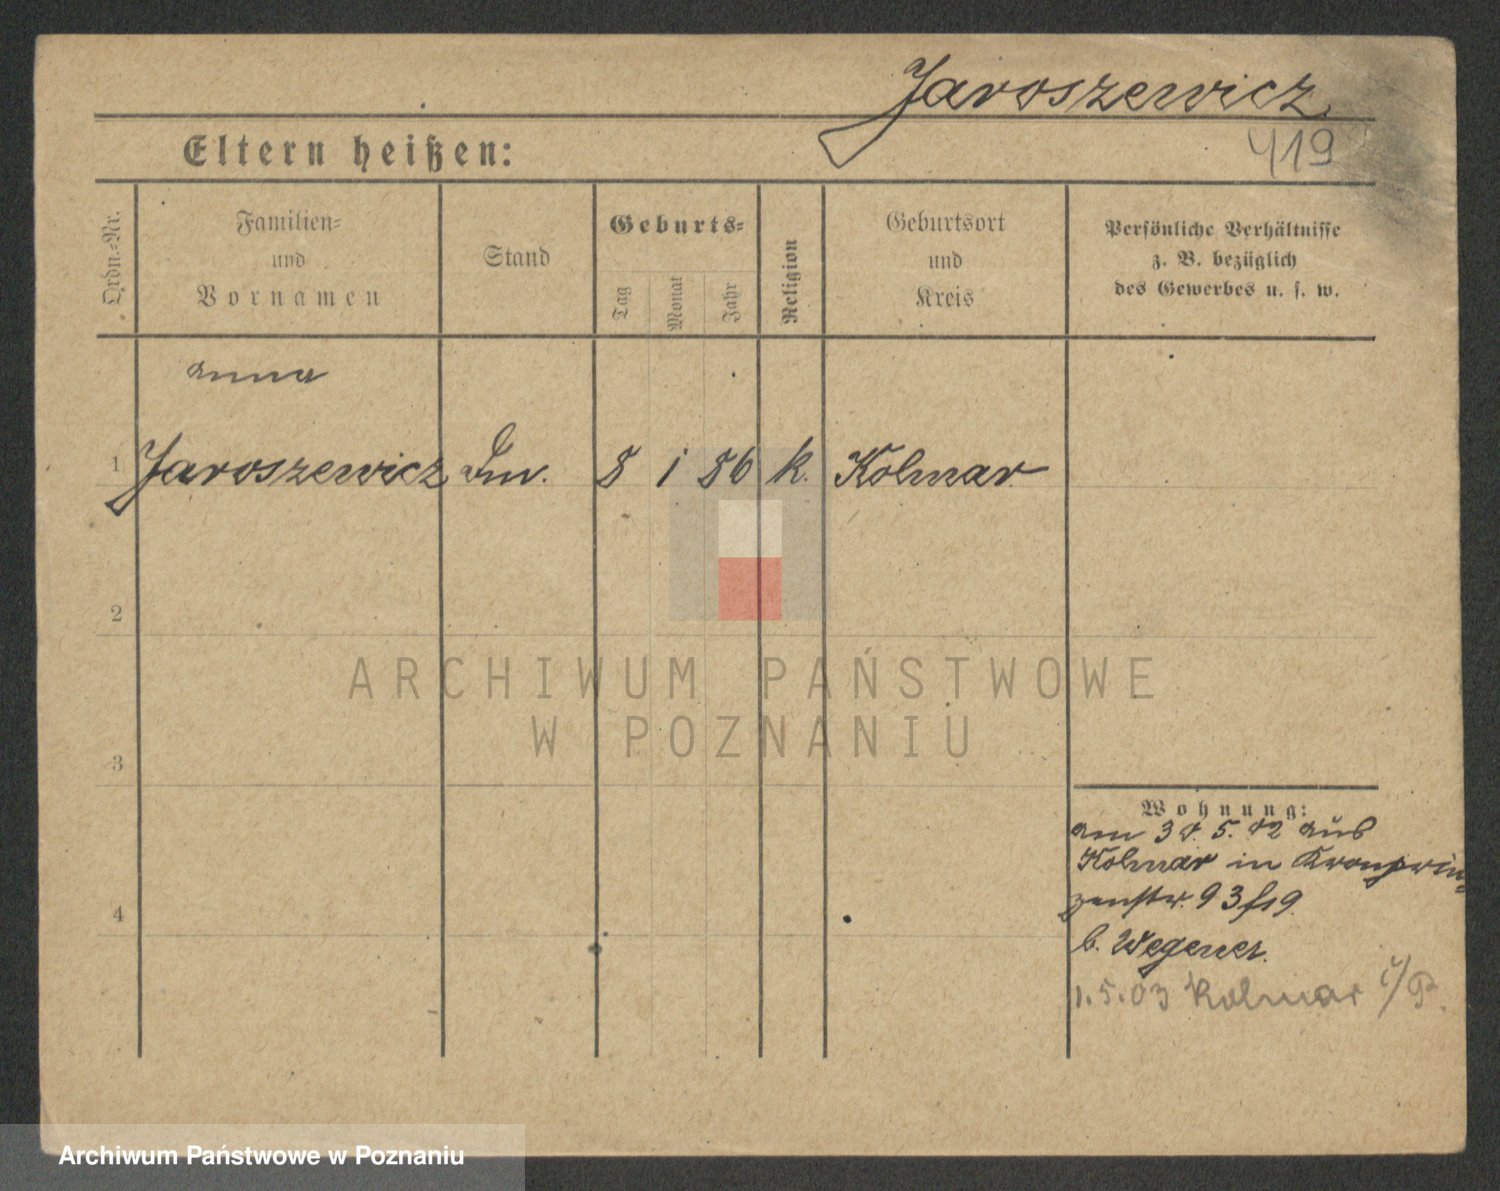 Jaroszewicz
419
Eltern heißen:
Ordn.-Nr.
Familien-
und
Vornamen
Stand
Geburts-
Tag
Monat
Jahr
Religion
Geburtsort
und
Kreis
Persönliche Verhältnisse
z. B. bezüglich
des Gewerbes u. s. w.
Anna
1 Jaroszewicz 8 1 86 k. Kolmar
2
ARCHIWUM PAŃSTWOWE
W POZNANIU
3
Wohnung:
am 5. 02 aus
Kolmar in Kronprin-
zenstr. 93
b. Wegener.
4
1.5.03 Kolmar i/P.
Archiwum Państwowe w Poznaniu